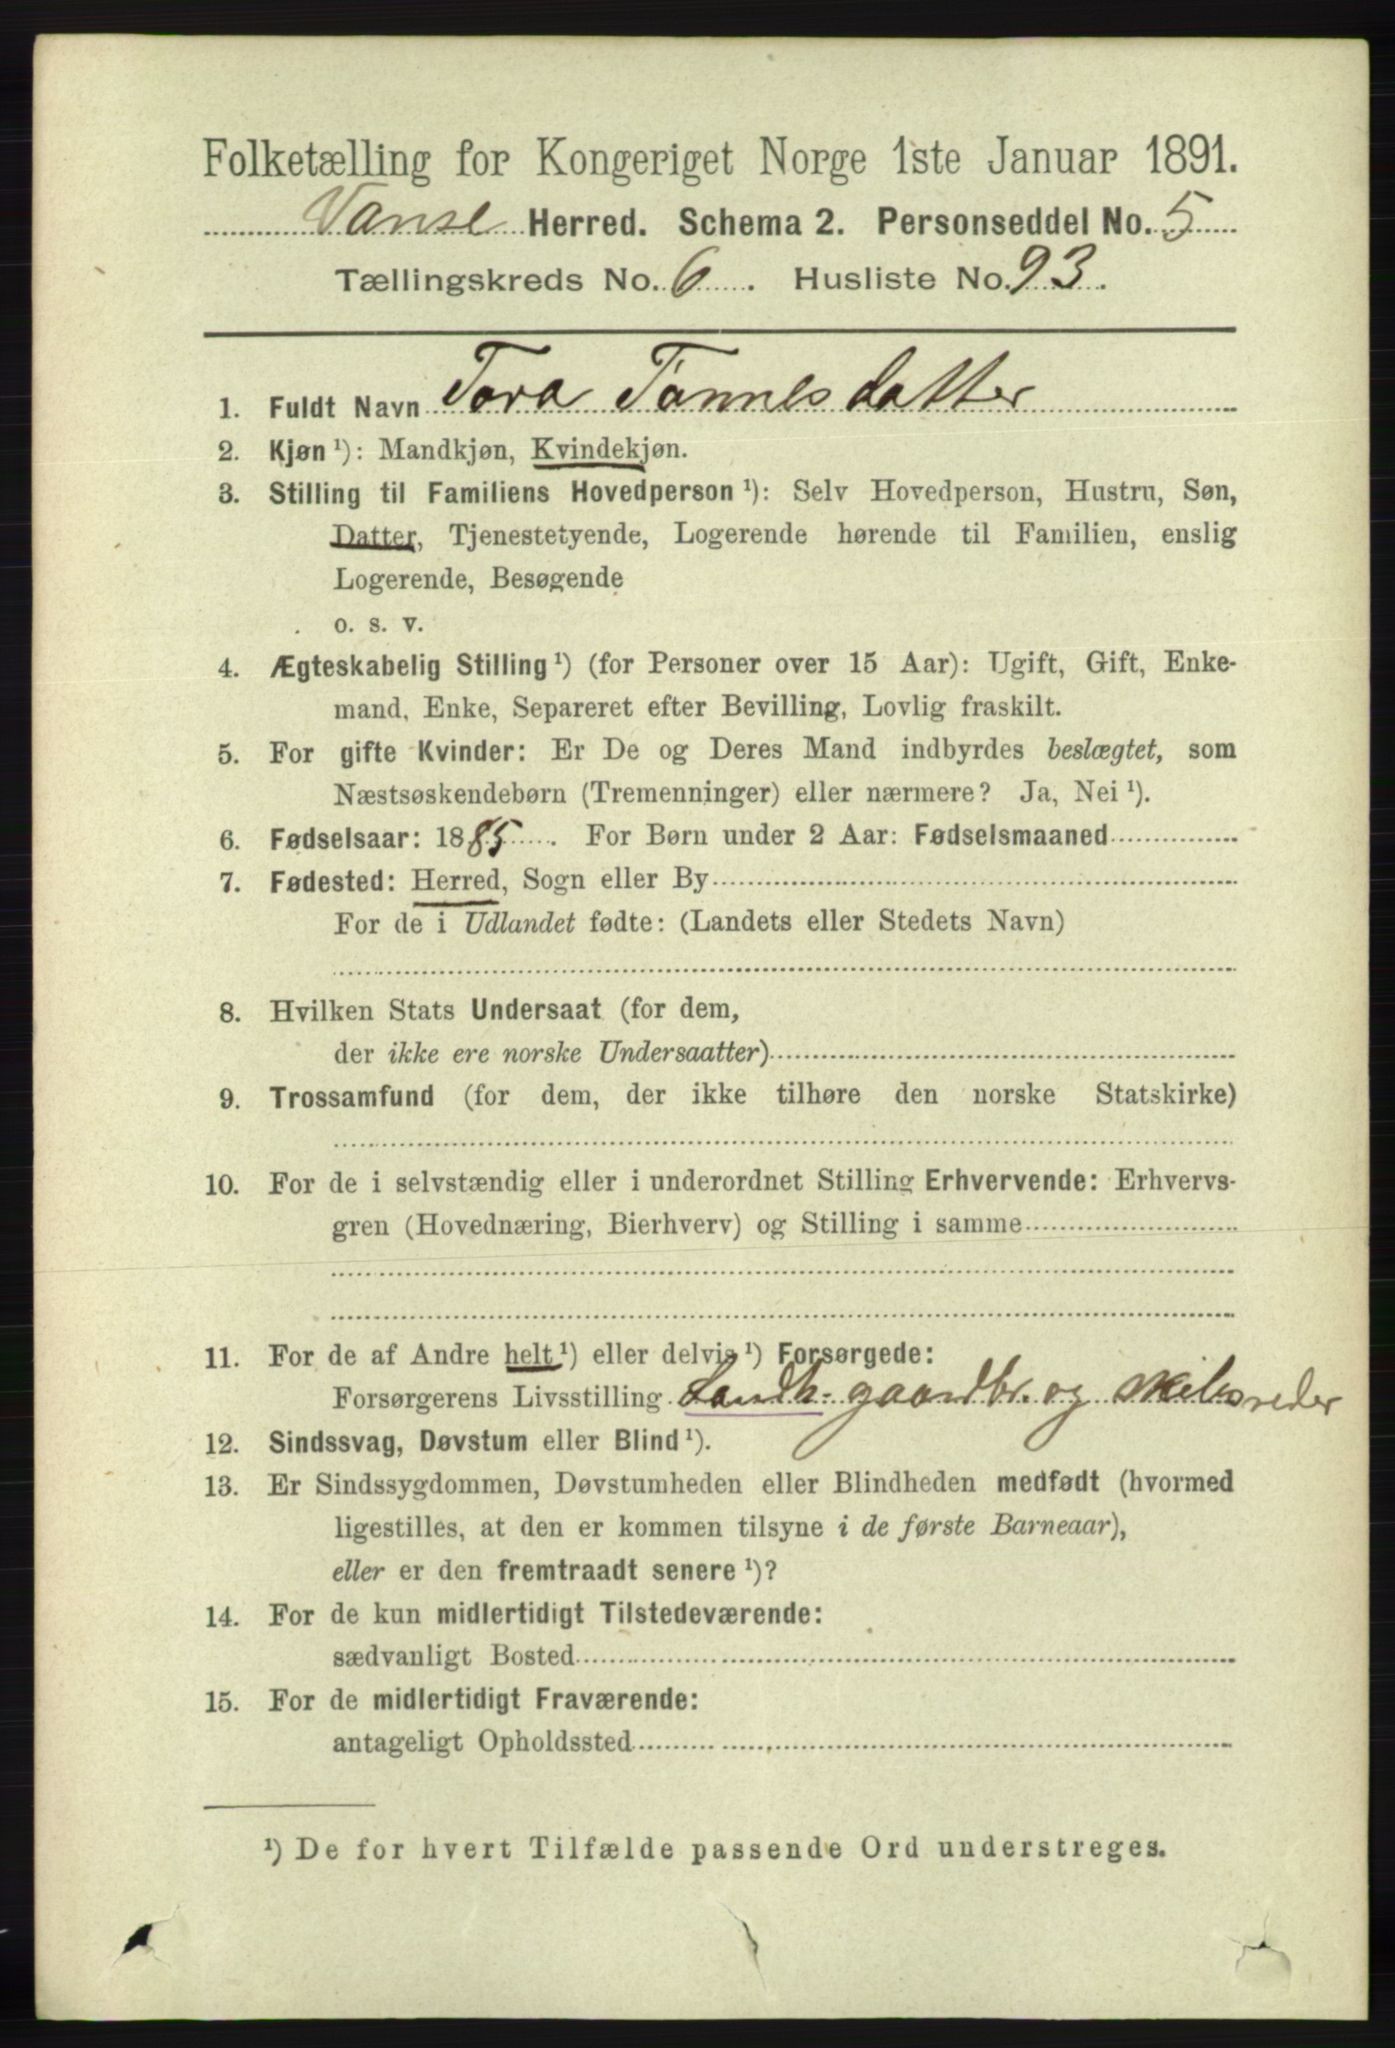 Folketælling for Kongeriget Norge 1ste Januar 1891.
Vanse Herred. Schema 2. Personseddel No. 5
Tællingskreds No. 6. Husliste No. 93.
1. Fuldt Navn Tora Tønnesdatter
2. Kjøn ¹): Mandkjøn, Kvindekjøn.
3. Stilling til Familiens Hovedperson ¹): Selv Hovedperson, Hustru, Søn,
Datter, Tjenestetyende, Logerende hørende til Familien, enslig
Logerende, Besøgende
o. s. v.
4. Ægteskabelig Stilling ¹) (for Personer over 15 Aar): Ugift, Gift, Enke-
mand, Enke, Separeret efter Bevilling, Lovlig fraskilt.
5. For gifte Kvinder: Er De og Deres Mand indbyrdes beslægtet, som
Næstsøskendebørn (Tremenninger) eller nærmere? Ja, Nei ¹).
6. Fødselsaar: 1885. For Børn under 2 Aar: Fødselsmaaned
7. Fødested: Herred, Sogn eller By
For de i Udlandet fødte: (Landets eller Stedets Navn)
8. Hvilken Stats Undersaat (for dem,
der ikke ere norske Undersaatter)
9. Trossamfund (for dem, der ikke tilhøre den norske Statskirke)
10. For de i selvstændig eller i underordnet Stilling Erhvervende: Erhvervs-
gren (Hovednæring, Bierhverv) og Stilling i samme
11. For de af Andre helt ¹) eller delvis ¹) Forsørgede:
Forsørgerens Livsstilling Landh. gaardbr. og skibsreder
12. Sindssvag, Døvstum eller Blind ¹).
13. Er Sindssygdommen, Døvstumheden eller Blindheden medfødt (hvormed
ligestilles, at den er kommen tilsyne i de første Barneaar),
eller er den fremtraadt senere ¹)?
14. For de kun midlertidigt Tilstedeværende:
sædvanligt Bosted
15. For de midlertidigt Fraværende:
antageligt Opholdssted
¹) De for hvert Tilfælde passende Ord understreges.